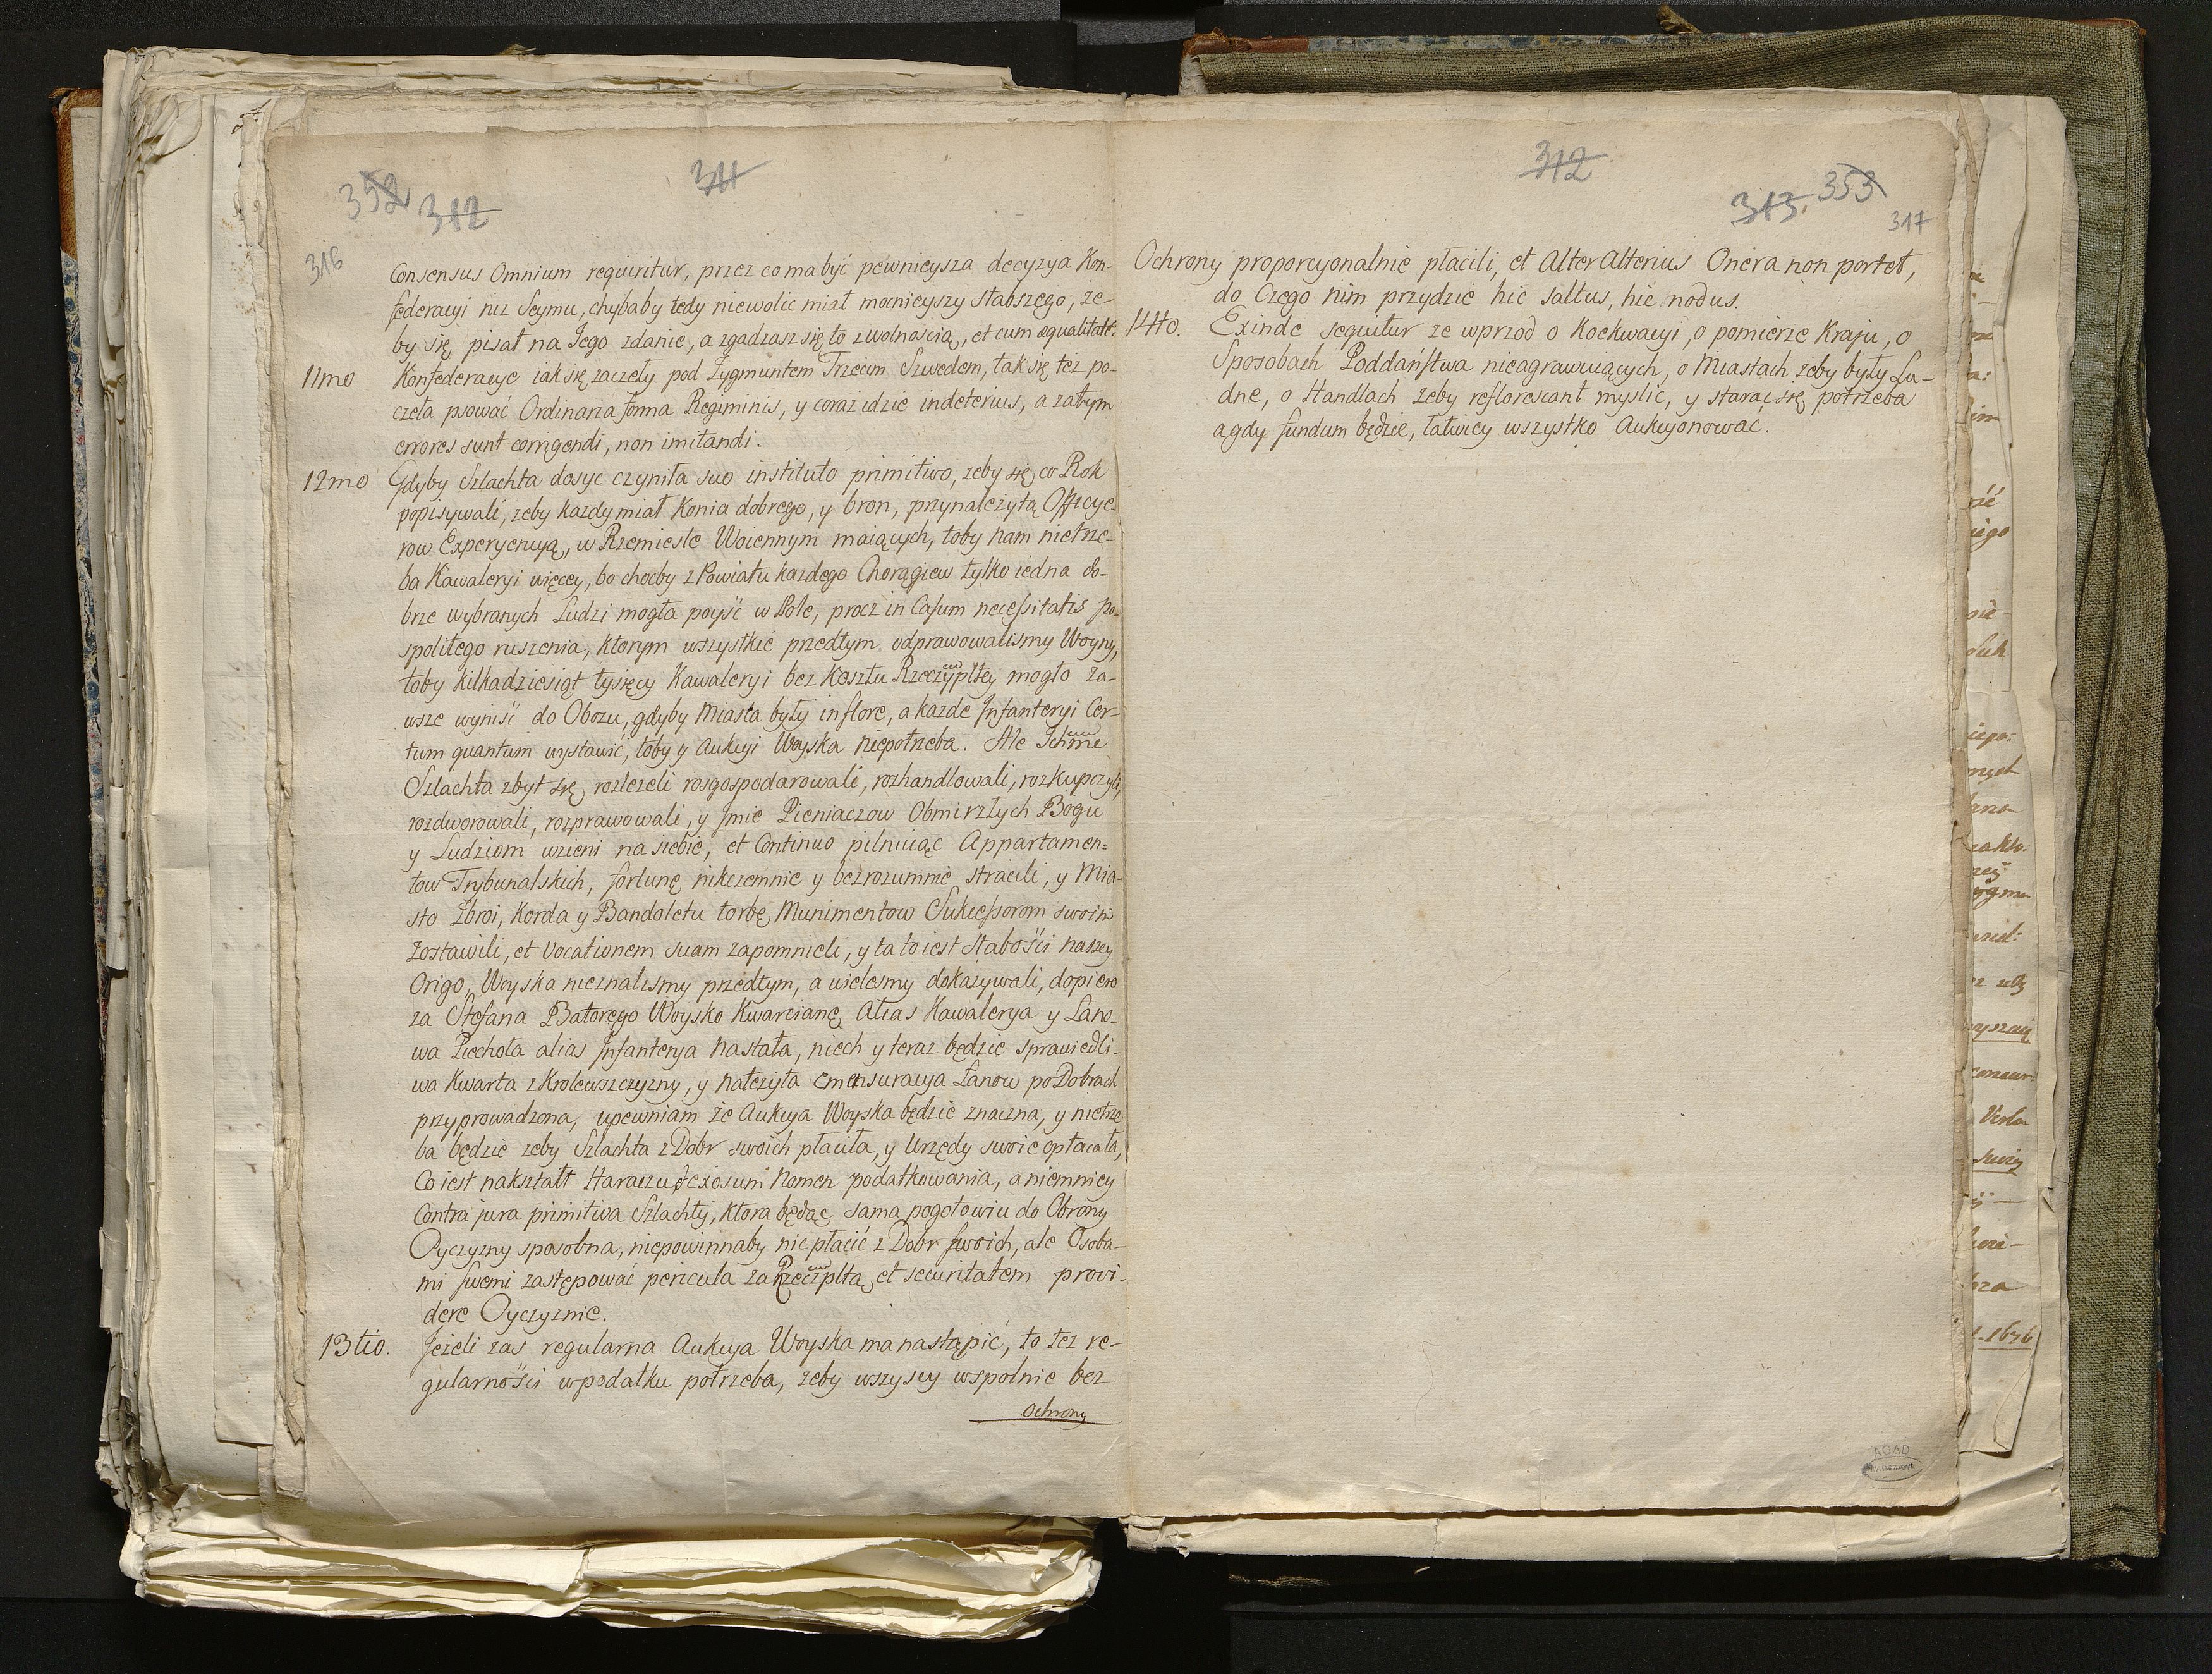 352
312
311
316
Consensus Omnium requiritur, przez co ma być pewnieysza decyzya Kon-
federacyi niz Seymu, chybaby tedy niewolić miał mocnieyszy słabszego, ze-
by się pisał na Jego zdanie, a zgadzasz się to z wolnością, et cum æqualitate.
11mo Konfederacye iak się zaczeły pod Zygmuntem Trzecim Szwedem, tak się też po-
czeła psować Ordinaria forma Regiminis, y coraz idzie in deterius, a zatym
errores sunt corrigendi, non imitandi.
12mo Gdyby Szlachta dosyc czyniła suo instituto primitivo, zeby się co Rok
popisywali, zeby kazdy miał Konia dobrego, y bron, przynależytą Officye-
row Experyencyą, w Rzemiesle Woiennym maiących, toby nam nietrze-
ba Kawaleryi więcey, bo choćby z Powiatu kazdego Chorągiew tylko iedna do-
brze wybranych Ludzi mogła poyść w Pole, procz in Casum necessitatis po-
spolitego ruszenia, ktorym wszystkie przedtym odprawowalismy Woyny,
toby kilkadziesiąt tysięcy Kawaleryi bez Kosztu Rzeczyplltey mogło za-
wsze wyniść do Obozu, gdyby Miasta były in flore, a kazde Infanteryi Cer-
tum quantum wystawić, toby y Aukcyi Woyska niepotrzeba. Ale Ichmć
Szlachta zbyt się rozleżeli rosgospodarowali, rozhandlowali, rozkupczyli,
rozdworowali, rozprawowali, y Jmie Pieniaczow Obmirzłych Bogu
y Ludziom wzieni na siebie, et Continuo pilniuiąc Appartamen-
tow Trybunalskich, fortunę nikczemnie y bezrozumnie stracili, y Mia-
sto Zbroi, Korda y Bandoletu torbę Munimentow Sukcessorom swoim
zostawili, et vocationem suam zapomnieli, y ta to iest słabości naszey
Origo, Woyska nieznalismy przedtym, a wielesmy dokazywali, dopiero
za Stefana Batorego Woysko Kwarciane, alias Kawalerya y Łano-
wa Piechota alias Infanterya nastała, niech y teraz będzie sprawiedli-
wa Kwarta z Krolewszczyzny, y nalezyta Emensuracya Łanow po Dobrach
przyprowadzona, upewniam że Aukcya Woyska będzie znaczna, y nietrze
ba będzie zeby Szlachta z Dobr swoich płaciła, y Urzędy swoie opłacała,
Co iest nakształt Haraczu & exosum Nomen podatkowania, a niemniey
Contra jura primitiva Szlachty, ktora będąc sama pogotowiu do Obrony
Oyczyzny sposobna, niepowinnaby nic płacić z Dobr swoich, ale Osoba-
mi swemi zastępować pericula za Rzeczplltą, et securitatem provi-
dere Oyczyznie.
13tio. Jezeli zas regularna Aukcya Woyska ma nastąpić, to tez re-
gularności w podatku potrzeba, zeby wszyscy wspolnie bez
Ochrony
312
353
313.
317
Ochrony proporcyonalnie płacili, et Alter Alterius Onera non portet,
do Czego nim przydzie hic saltus, hic nodus.
14to. Exinde sequitur ze wprzod o Koekwacyi, o pomierze Kraju, o
Sposobach Poddaństwa nieagrawuiących, o Miastach żeby były Lu-
dne, o Handlach zeby reflorescant myslic, y starac się potrzeba
a gdy fundum będzie, łatwiey wszystko Aukcyonować.
AGAD